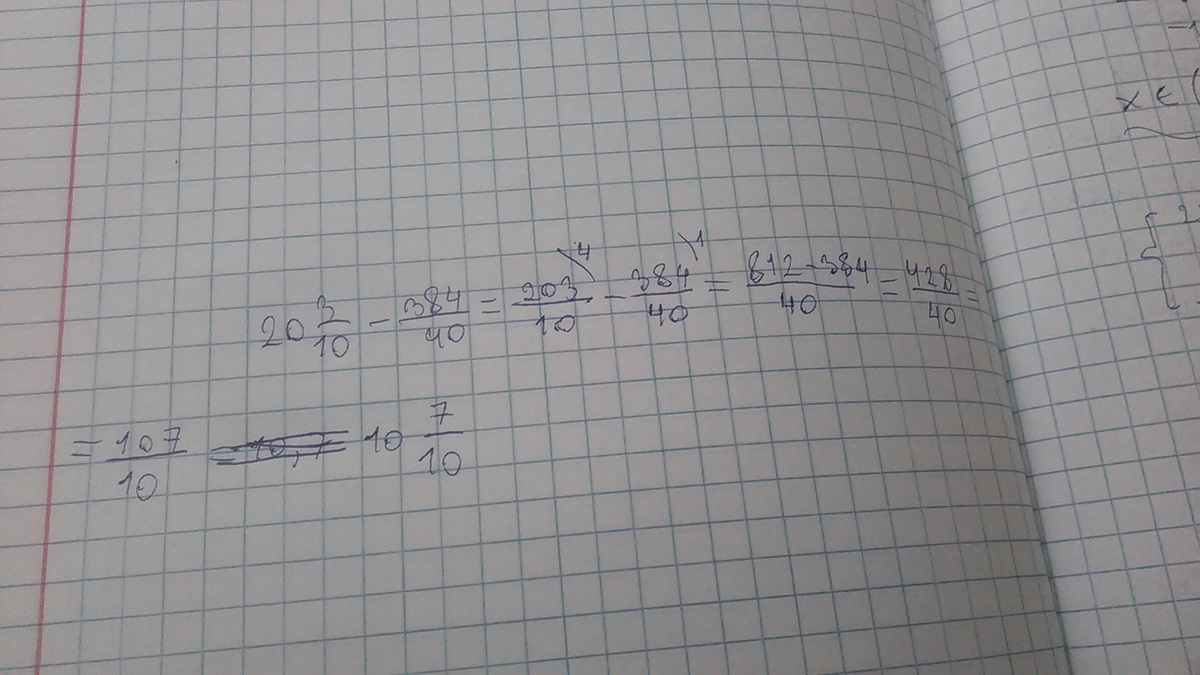 20 3/10 - 384/40 = 203/10 \4 - 384/40 \1 = 812-384/40 = 428/40 =
= 107/10 = 10,7 10 7/10
x ∈ (
{ 2